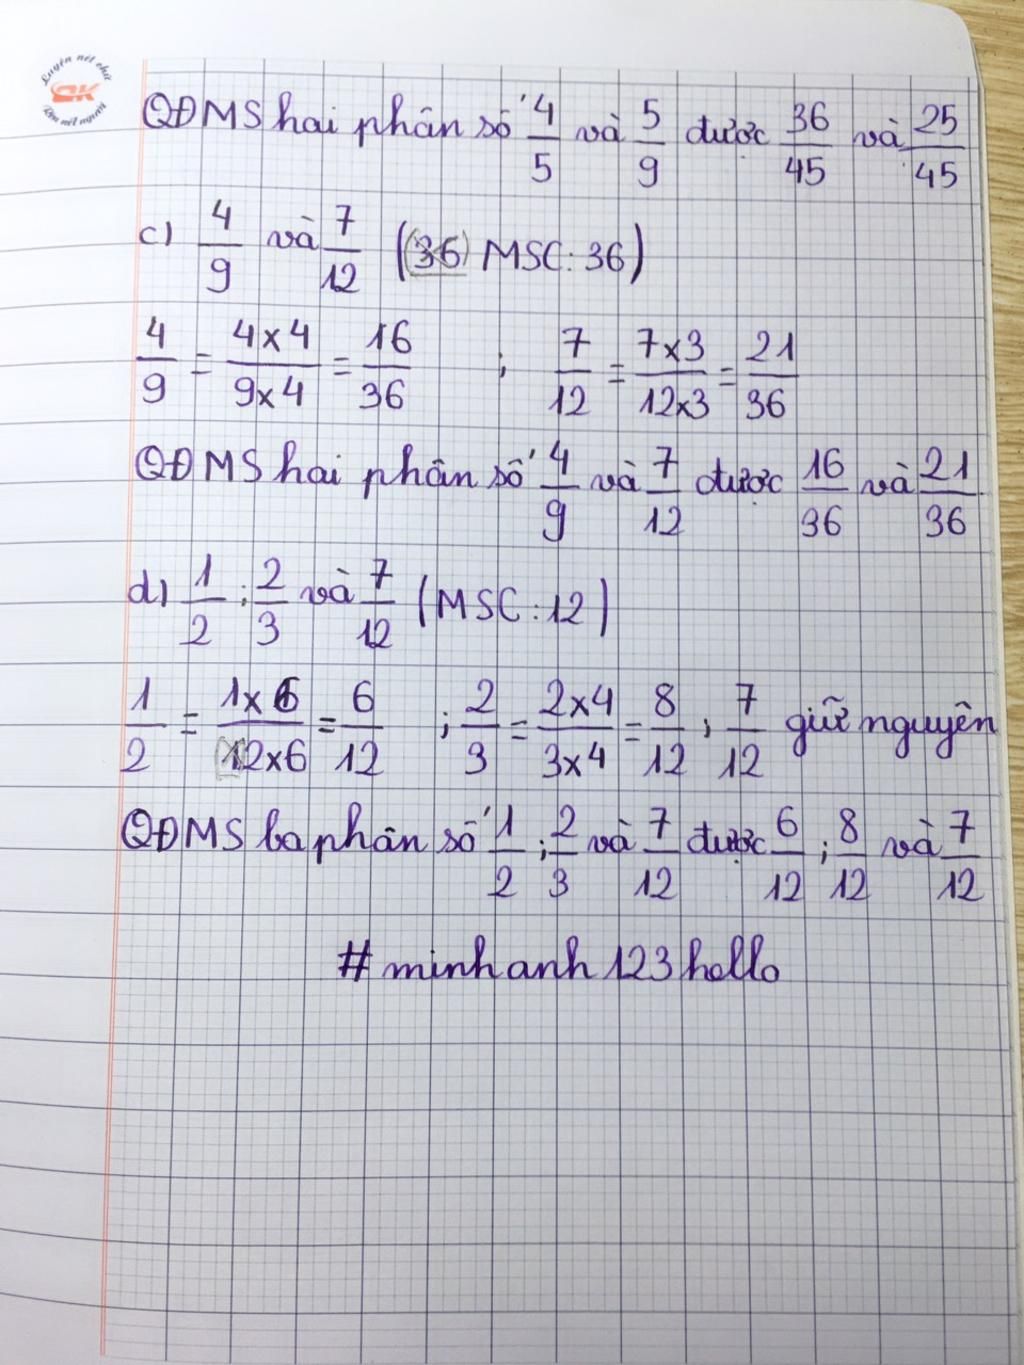 Luyện nét chữ
ĐK
Rèn nết người
QĐMS hai phân số 4/5 và 5/9 được 36/45 và 25/45
c) 4/9 và 7/12 ((36) MSC: 36)
4/9 = 4x4/9x4 = 16/36 ; 7/12 = 7x3/12x3 = 21/36
QĐMS hai phân số 4/9 và 7/12 được 16/36 và 21/36
d) 1/2 ; 2/3 và 7/12 (MSC: 12)
1/2 = 1x6/2x6 = 6/12 ; 2/3 = 2x4/3x4 = 8/12 ; 7/12 giữ nguyên
QĐMS ba phân số 1/2 ; 2/3 và 7/12 được 6/12 ; 8/12 và 7/12
# minh anh 123 hello